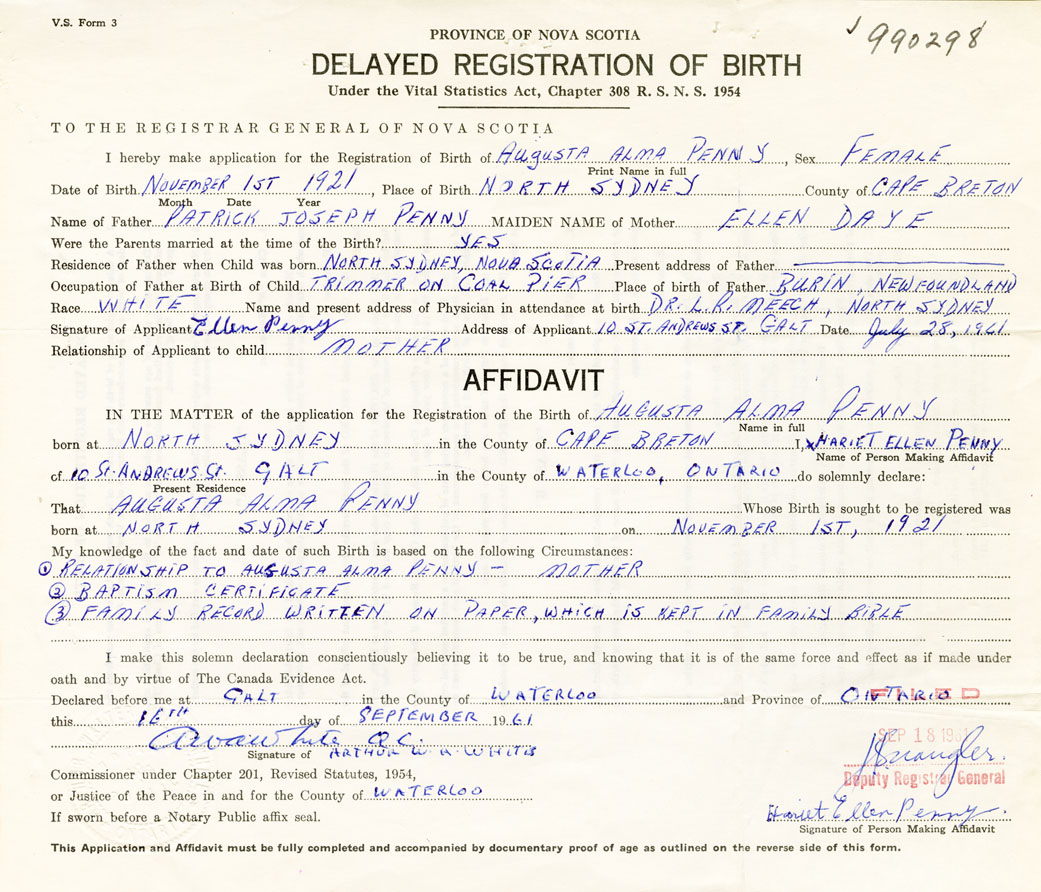 V.S. Form 3
990298
PROVINCE OF NOVA SCOTIA
DELAYED REGISTRATION OF BIRTH
Under the Vital Statistics Act, Chapter 308 R. S. N. S. 1954
TO THE REGISTRAR GENERAL OF NOVA SCOTIA
I hereby make application for the Registration of Birth of AUGUSTA ALMA PENNY, Sex FEMALE
Print Name in full
Date of Birth NOVEMBER 1ST 1921, Place of Birth NORTH SYDNEY County of CAPE BRETON
Month Date Year
Name of Father PATRICK JOSEPH PENNY MAIDEN NAME of Mother ELLEN DAYE
Were the Parents married at the time of the Birth? YES
Residence of Father when Child was born NORTH SYDNEY, NOVA SCOTIA Present address of Father
Occupation of Father at Birth of Child TRIMMER ON COAL PIER Place of birth of Father BURIN, NEWFOUNDLAND
Race WHITE Name and present address of Physician in attendance at birth DR. L.R. MEECH, NORTH SYDNEY
Signature of Applicant Ellen Penny Address of Applicant 10 ST. ANDREWS ST. GALT Date July 28, 1961
Relationship of Applicant to child MOTHER
AFFIDAVIT
IN THE MATTER of the application for the Registration of the Birth of AUGUSTA ALMA PENNY
Name in full
born at NORTH SYDNEY in the County of CAPE BRETON I, x HARIET ELLEN PENNY
Name of Person Making Affidavit
of 10 ST. ANDREWS ST. GALT in the County of WATERLOO, ONTARIO do solemnly declare:
Present Residence
That AUGUSTA ALMA PENNY Whose Birth is sought to be registered was
born at NORTH SYDNEY on NOVEMBER 1ST, 1921
My knowledge of the fact and date of such Birth is based on the following Circumstances:
① RELATIONSHIP TO AUGUSTA ALMA PENNY — MOTHER
② BAPTISM CERTIFICATE
③ FAMILY RECORD WRITTEN ON PAPER, WHICH IS KEPT IN FAMILY BIBLE
I make this solemn declaration conscientiously believing it to be true, and knowing that it is of the same force and effect as if made under
oath and by virtue of The Canada Evidence Act.
Declared before me at GALT in the County of WATERLOO and Province of ONTARIO
FILED
this 16TH day of SEPTEMBER 1961
SEP 18 1961
White Q.C.
Signature of ARTHUR W. A. WHITE
Deputy Registrar General
Commissioner under Chapter 201, Revised Statutes, 1954,
or Justice of the Peace in and for the County of WATERLOO
If sworn before a Notary Public affix seal.
Hariet Ellen Penny
Signature of Person Making Affidavit
This Application and Affidavit must be fully completed and accompanied by documentary proof of age as outlined on the reverse side of this form.